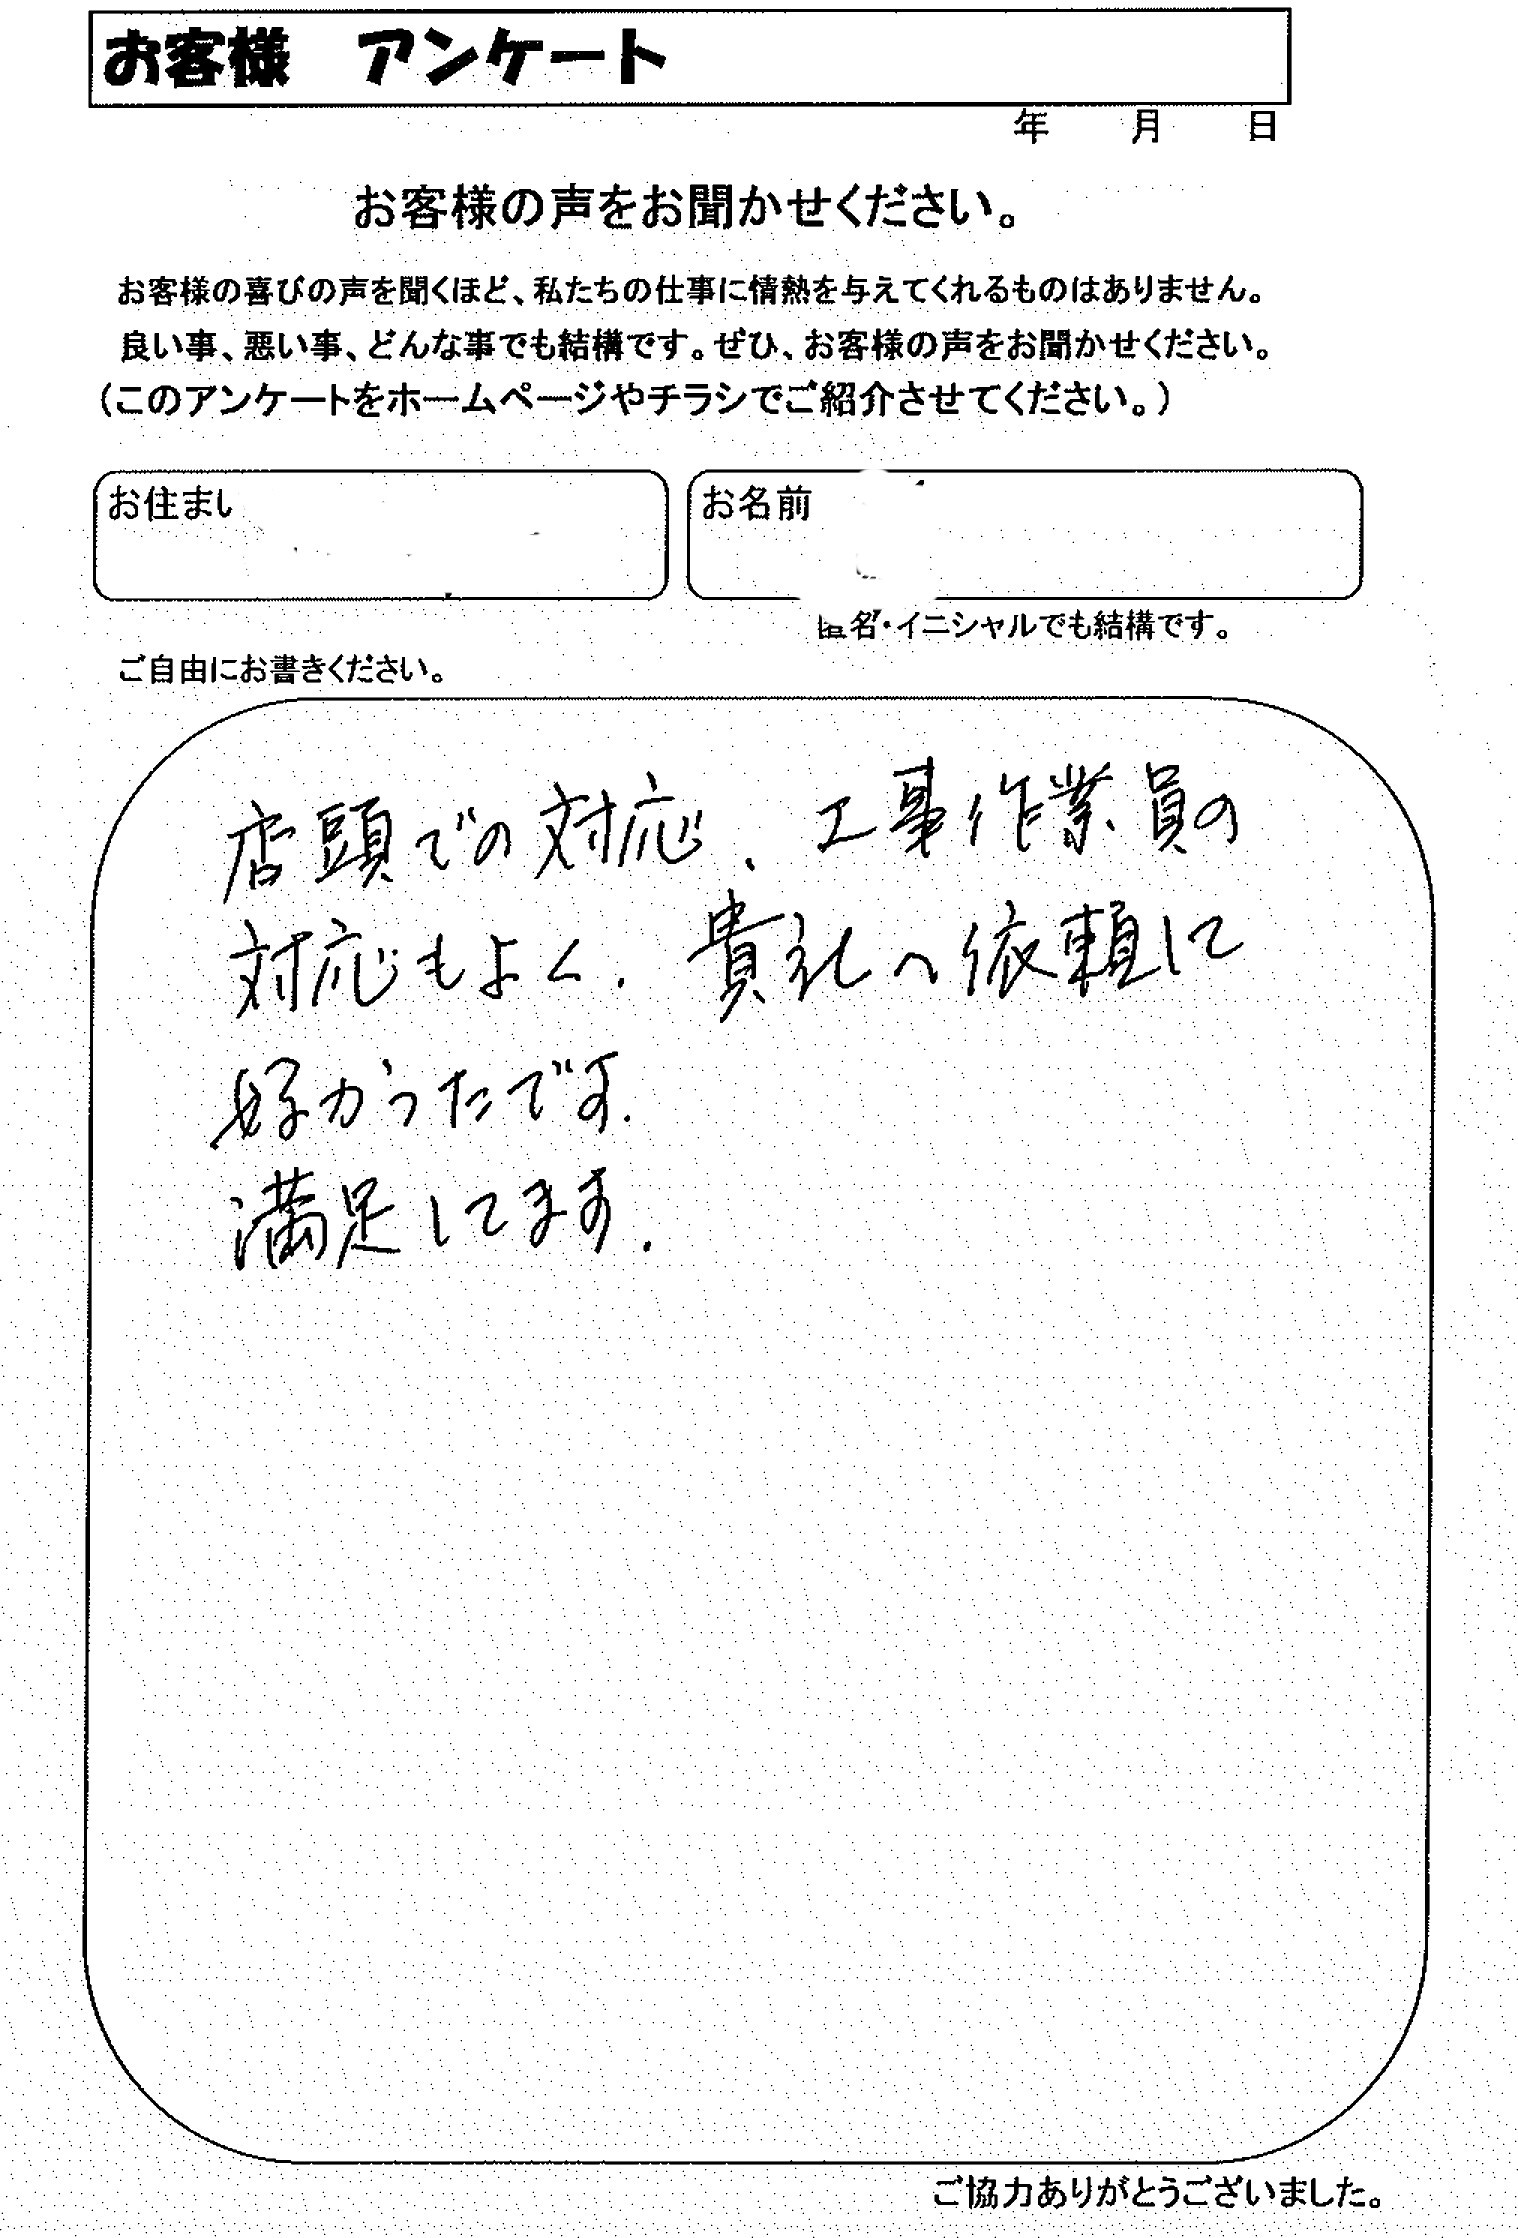 お客様 アンケート
年 月 日
お客様の声をお聞かせください。
お客様の喜びの声を聞くほど、私たちの仕事に情熱を与えてくれるものはありません。
良い事、悪い事、どんな事でも結構です。ぜひ、お客様の声をお聞かせください。
(このアンケートをホームページやチラシでご紹介させてください。)
お住まい お名前
匿名・イニシャルでも結構です。
ご自由にお書きください。
店頭での対応、工事作業員の
対応もよく、貴社へ依頼して
好かったです。
満足してます。
ご協力ありがとうございました。